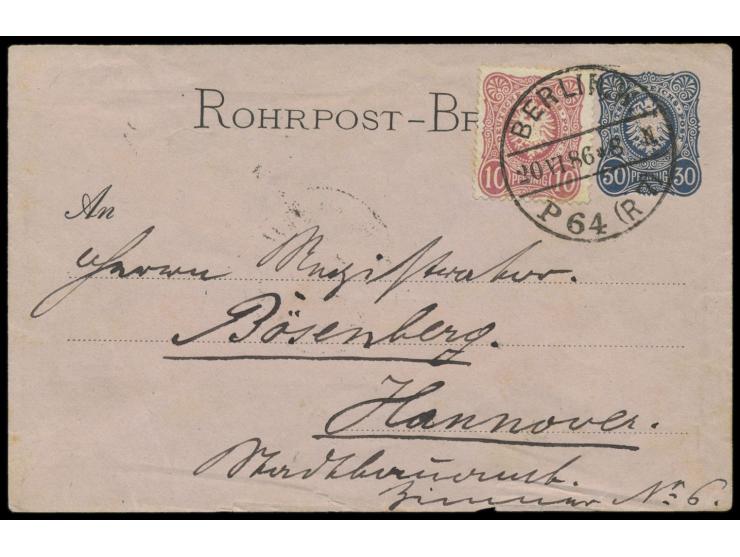 ROHRPOST-BR
10 PFENNIG 10
30 PFENNIG 30
BERLIN, N
20 VI 86 * 8 N.
P 64 (R
An
Herrn Registrator.
Bösenberg.
Hannover.
Stadtbauamt.
Zimmer No 6.